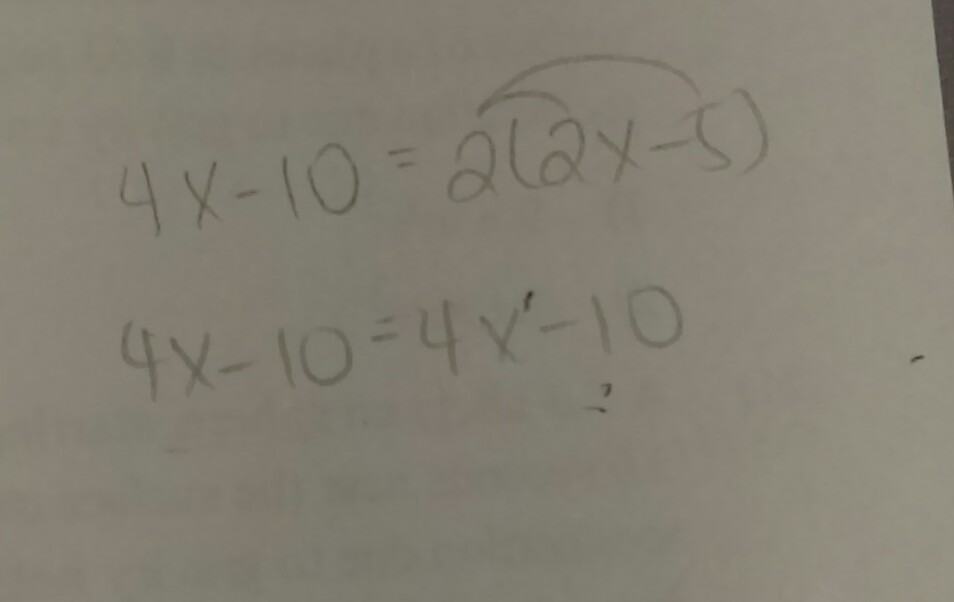 4x-10=2(2x-5)
4x-10=4x-10